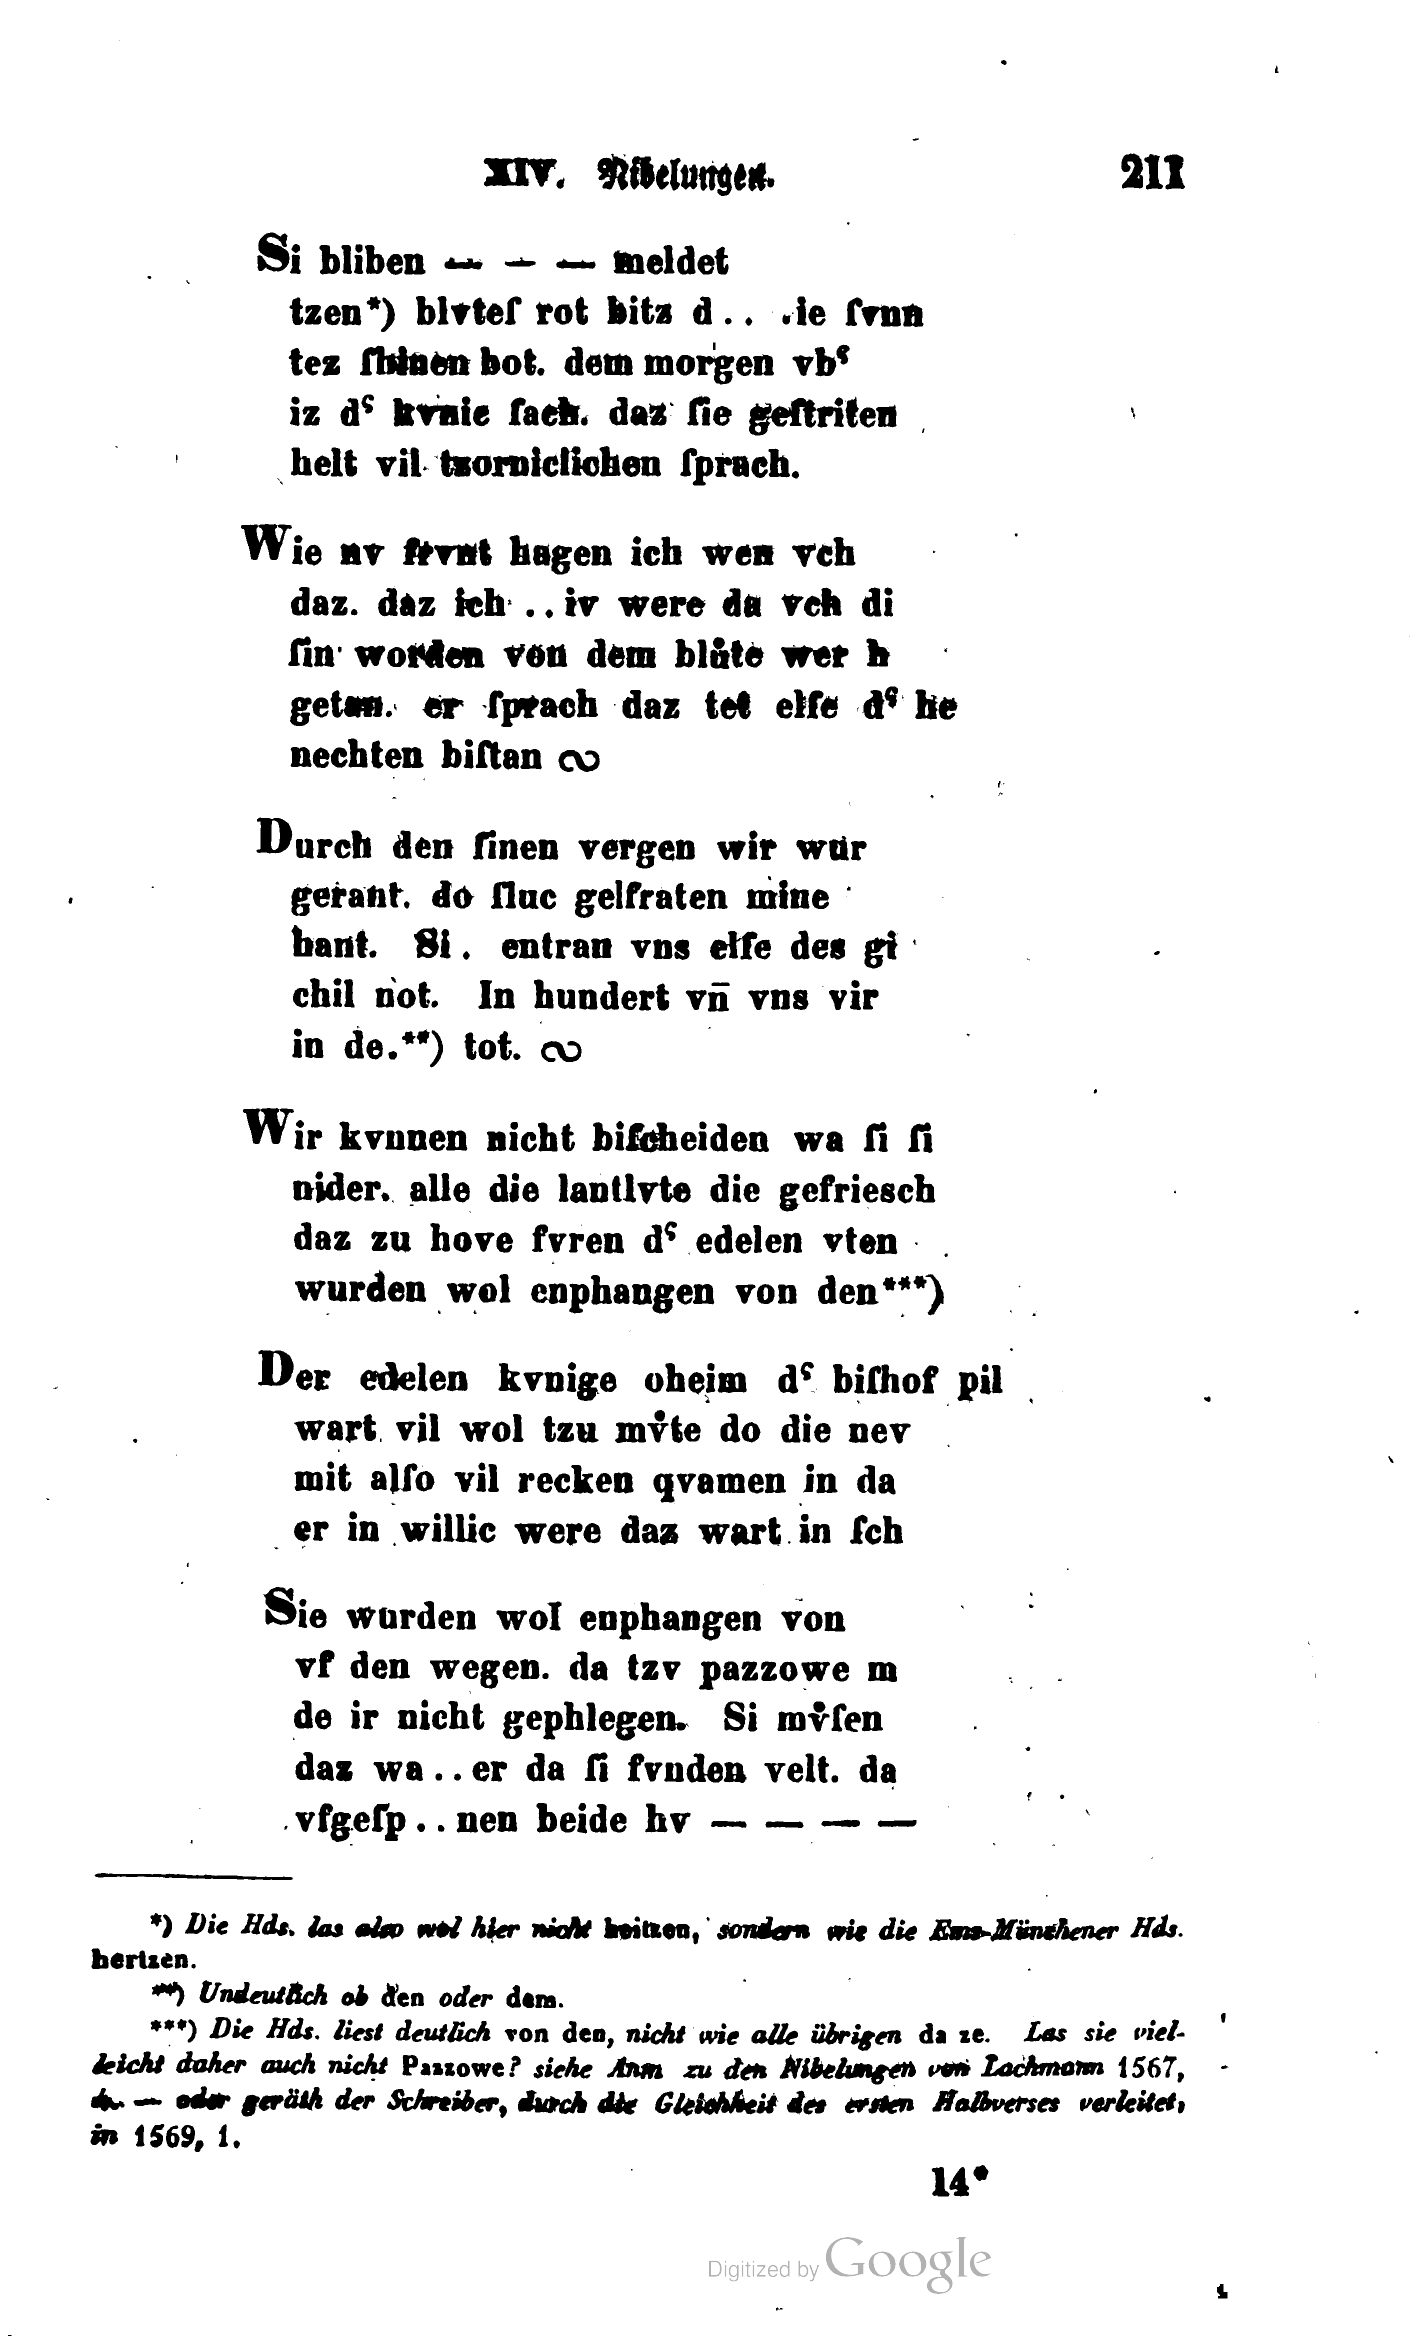 XIV. Nibelungen. 211
Si bliben — – — meldet
tzen*) blvteſ rot bitz d . . . ie ſvnn
tez ſhinen bot. dem morgen vbˤ
iz dˤ kvnic ſach. daz ſie geſtriten
helt vil tzorniclichen ſprach.
Wie nv frvnt hagen ich wen vch
daz. daz ich . . iv were da vch di
ſin worden von dem blůte wer h
getan. er ſprach daz tet elſe dˤ he
nechten biſtan ∾
Durch den ſinen vergen wir wur
gerant. do ſluc gelfraten mine
hant. Si . entran vns elſe des gi
chil not. In hundert vn̄ vns vir
in de.**) tot. ∾
Wir kvnnen nicht biſcheiden wa ſi ſi
nider. alle die lantlvte die gefriesch
daz zu hove fvren dˤ edelen vten
wurden wol enphangen von den***)
Der edelen kvnige oheim dˤ biſhof pil
wart vil wol tzu mv̊te do die nev
mit alſo vil recken qvamen in da
er in willic were daz wart in ſch
Sie wurden wol enphangen von
vf den wegen. da tzv pazzowe m
de ir nicht gephlegen. Si mv̊ſen
daz wa . . er da ſi fvnden velt. da
vfgeſp . . nen beide hv — — — —
*) Die Hds. las also wol hier nicht heitzen, sondern wie die Ems-Münchener Hds.
hertzen.
**) Undeutlich ob den oder dem.
***) Die Hds. liest deutlich von den, nicht wie alle übrigen da ze. Las sie viel-
leicht daher auch nicht Pazzowe? siehe Anm zu den Nibelungen von Lachmann 1567,
— oder geräth der Schreiber, durch die Gleichheit des ersten Halbverses verleitet,
in 1569, 1.
14*
Digitized by Google